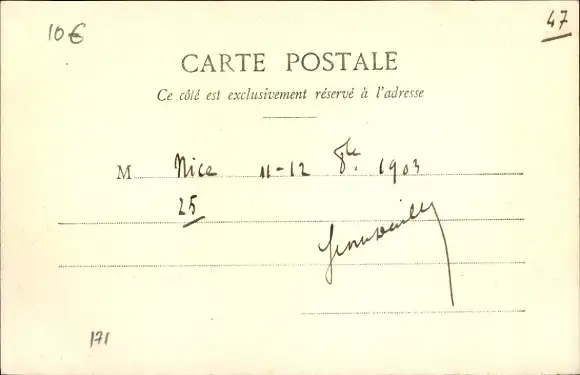 10€
47
CARTE POSTALE
Ce côté est exclusivement réservé à l'adresse
M Nice 11-12 8bre. 1903
25
171